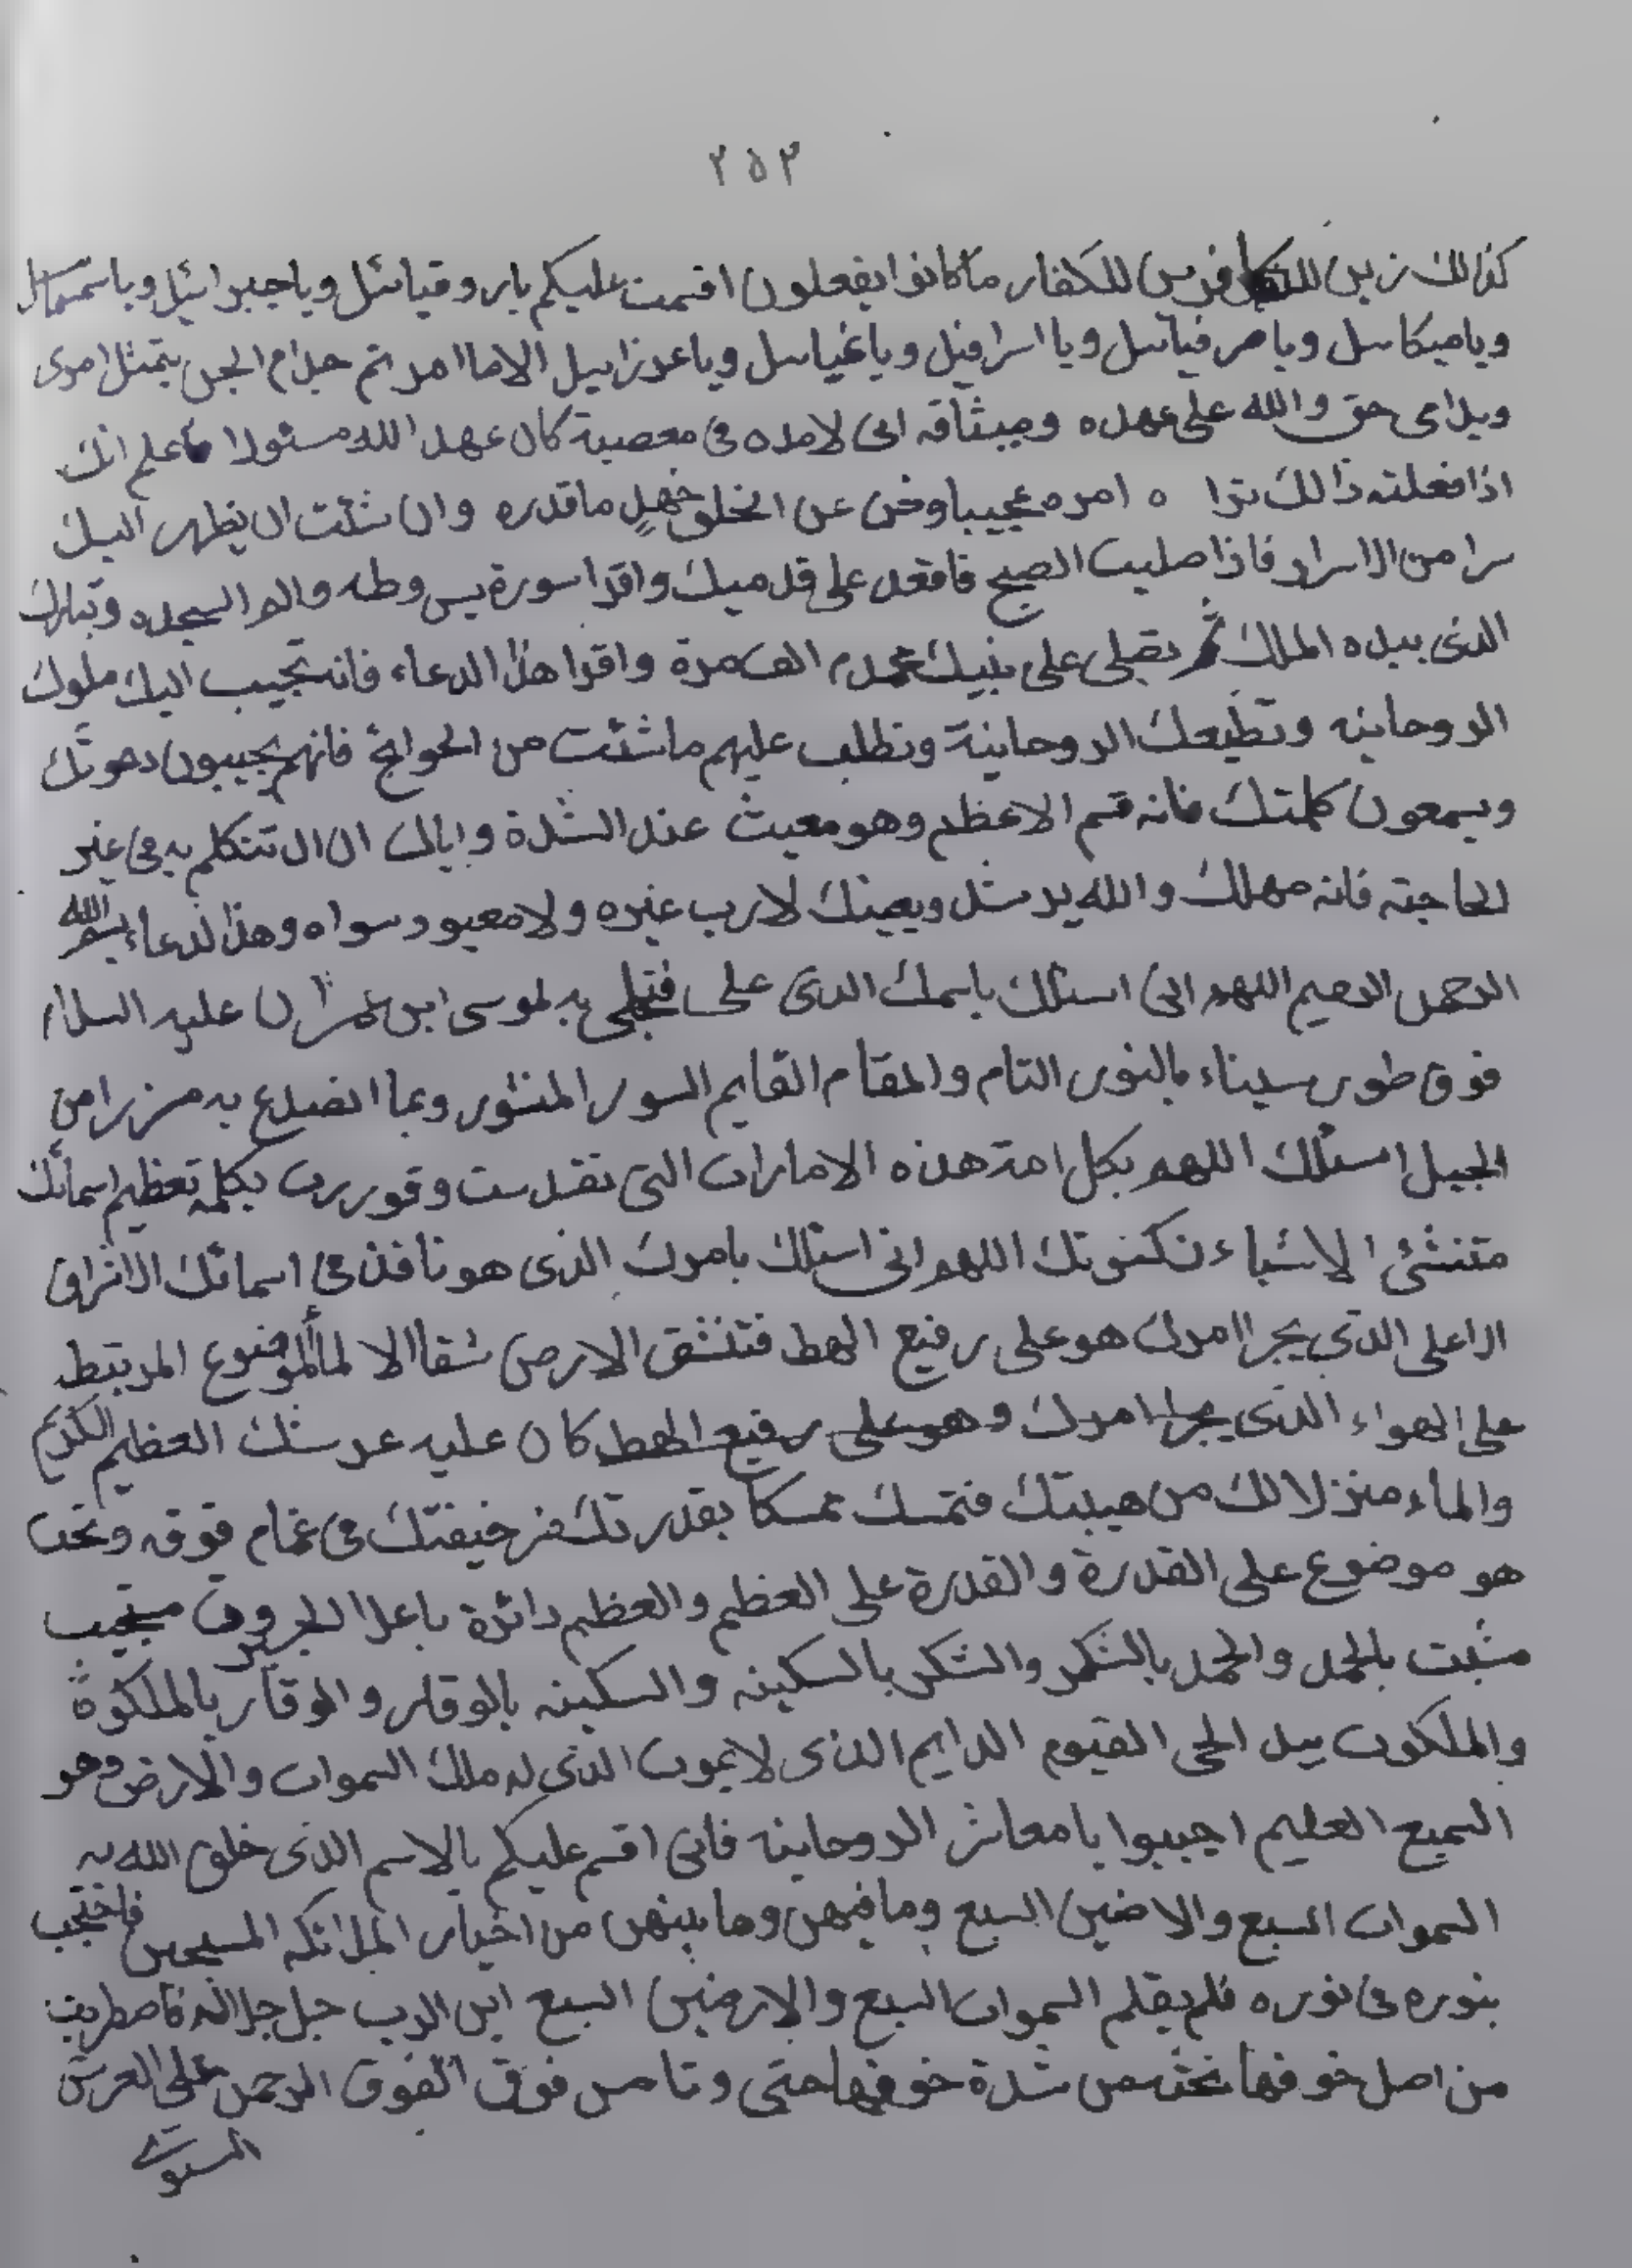 ٢٥٢
كذالك زين للكافرين للكفار ماكانوا يفعلون اقسمت عليكم يا روقيائيل ويا جبرائيل ويا سمسمائيل
وياميكاىىل وياصرفيائيل ويا اسرافيل ويا عىياىىل وياعزرابيل الاماامرتم خدام الجن بتمثل امرى
وبداى حق والله على عهده وميثاقه انى لامده فى معصية كان عهد الله مسئولا فاعلم انك
اذا فعلته ذالك ترا ه امره عجيبا وخن عن الخلق جهل ماقدره وان شئت ان يظهر اليك
سرا من الاسرار فاذا صليت الصبح فاقعد على قدميك واقرا سورة يس وطه والم السجده وتبارك
الذى بيده الملك ثم تصلى على نبيك محمدم الف مرة واقرا هذا الدعاء فانه تجيب اليك ملوك
الروحانيه وتطيعك الروحانية وتطلب عليهم ماشئت من الحوائج فانهم يجيبون دعوتك
ويسمعون كلمتك فانه قسم الاعظم وهو مغيث عند الشدة واياك ان ال تتكلم به فى غير
الحاجته فانه مهلك والله يرشدك ويعينك لارب غيره ولا معبود سواه وهذا لدعاء بسم الله
الرحمن الرحيم اللهم انى اسئلك باسمك الذى على فتجلى به لموسى ابن عمران عليه السلام
فوق طور سيناء بالنور التام والمقام القايم السور المنثور وبما انصدع به مزبرا من
الجبل اسئلك اللهم بكل امة هذه الامارات التى تقدست وقوررت بكلمة تعظيم اسمائك
متنشئ الاشياء نكنونك اللهم انى اسئلك بامرك الذى هو نافذ فى اسمائك الانراق
الاعلى الذى يجرا امرك هو على رفيع الهط فتنشق الارض شقا الا لما الموضوع المربتط
على الهواء الذى يجرا امرك وهو على رفيع الهط كان عليه عرشك العظيم الكريم
والماء منزلالك من هيبتك فتمسك تمسكا بقدرتك فمن خيفتك فى غمام فوقه وتحت
هو موضوع على القدرة والقدرة على العظم والعظم دائرة باعلا الحروف مستجيب
مثبت بالحمد والحمد بالشكر والشكر بالسكينه والسكينه بالوقار والوقار بالملكوة
والملكوت بيد الحى القيوم الدايم الذى لايموت الذى له ملك السموات والارض وهو
السميع العليم اجيبوا يا معاشر الروحانيه فانى اقسم عليكم بالاسم الذى خلق الله به
السموات السبع والاضين السبع ومافيهن وما بينهن من اخيار الملائكه المسبحين فاحتجب
بنوره فى نوره فلم يعلم السموات السبع والارضين السبع اين الرب جل جلاله فاصطربت
من اصل خوفها تخشى من شدة خوفها حتى وتامن فوق الفوق الرحمن على العرش
استوى